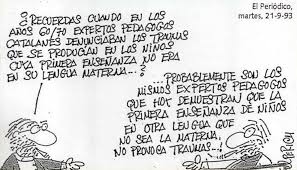 El Periódico,
martes, 21-9-93
¿RECUERDAS CUANDO EN LOS
AÑOS 60/70 EXPERTOS PEDAGOGOS
CATALANES DENUNCIABAN LOS TRAUMAS
QUE SE PRODUCÍAN EN LOS NIÑOS
CUYA PRIMERA ENSEÑANZA NO ERA
EN SU LENGUA MATERNA...?
...PROBABLEMENTE SON LOS
MISMOS EXPERTOS PEDAGOGOS
QUE HOY DEMUESTRAN QUE LA
PRIMERA ENSEÑANZA DE NIÑOS
EN OTRA LENGUA QUE
NO SEA LA MATERNA,
NO PROVOCA TRAUMAS...!
PERICH